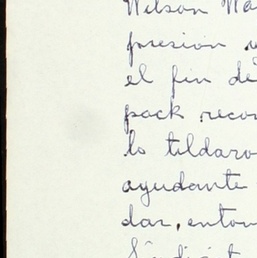 Wilson Wa
presión
el fin de
pack recor
lo tildaro
ayudante
dar, enton